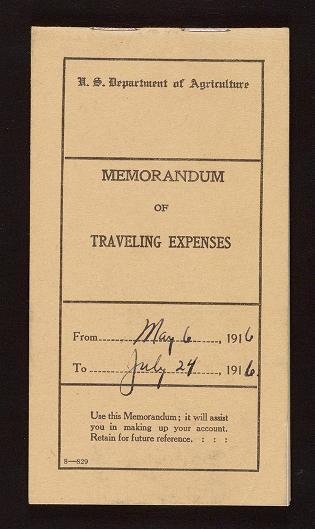 U. S. Department of Agriculture
MEMORANDUM
OF
TRAVELING EXPENSES
From May 6, 1916
To July 24, 1916.
Use this Memorandum; it will assist
you in making up your account.
Retain for future reference. : : :
8—829